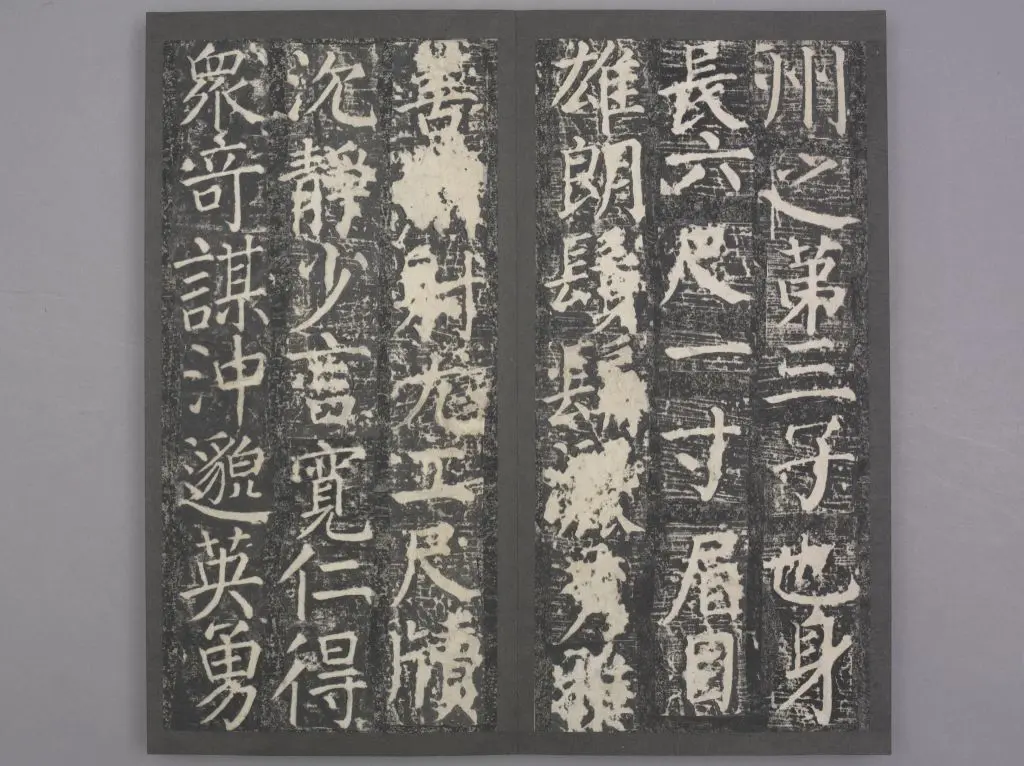 州之第三子也身
長六尺一寸眉目
雄朗鬚秀雅
善射尤工尺牘
沉靜少言寬仁得
衆竒謀沖邈英勇